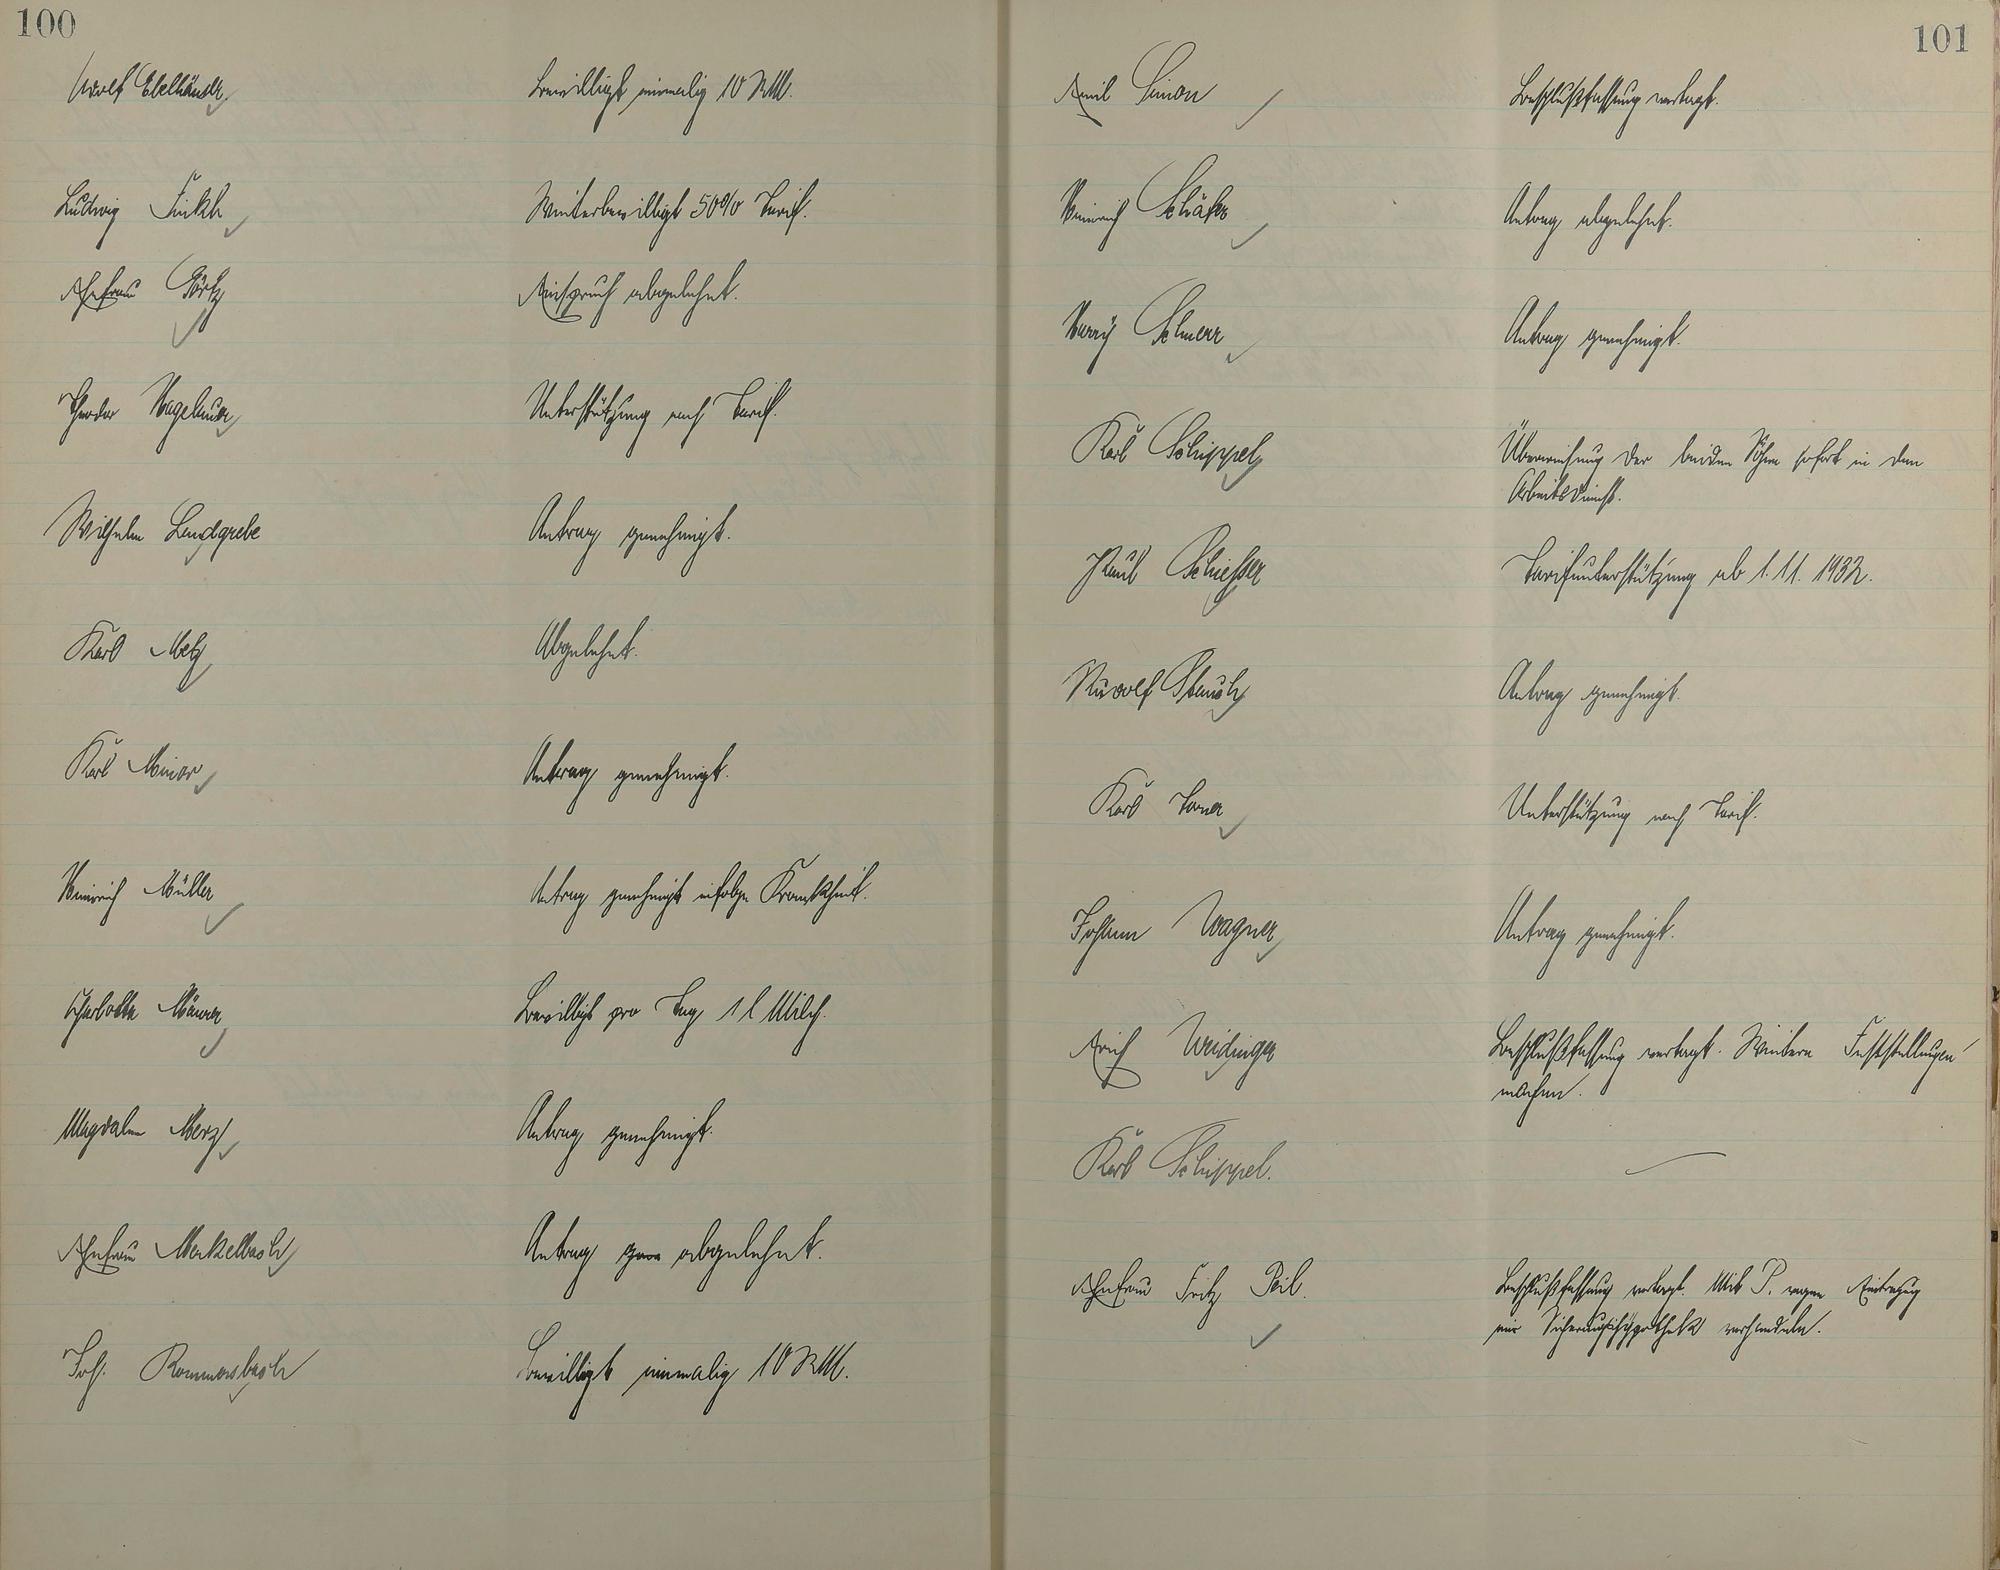 100
Adolf Ebelhäuser. Bewilligt einmalig 10 RM.
Ludwig Finkh Weiterbewilligt 50% Tarif.
Ehefrau Görtz Einspruch abgelehnt.
Theodor Hagelauer Unterstützung nach Tarif.
Wilhelm Landgrebe Antrag genehmigt.
Karl Metz Abgelehnt.
Karl Minor Antrag genehmigt.
Heinrich Müller Antrag genehmigt infolge Krankheit.
Charlotte Maurer Bewilligt pro Tag 1 l Milch.
Magdalene Merz Antrag genehmigt.
Ehefrau Merkelbach Antrag gene abgelehnt.
Joh. Rommersbach Bewilligt einmalig 10 RM.
101
Emil Simon Beschlußfassung vertagt.
Heinrich Schäfer Antrag abgelehnt.
Harry Schmerr Antrag genehmigt.
Karl Schippel Überweisung der beiden Söhne sofort in den
Arbeitsdienst.
Paul Schiesser Tarifunterstützung ab 1.11. 1932.
Rudolf Stauch Antrag genehmigt.
Karl Unterstützung nach Tarif.
Johann Wagner Antrag genehmigt.
Erich Weidinger Beschlußfassung vertagt. Weitere Feststellungen
machen.
Karl Schippel. —
Ehefrau Fritz Peil. Beschlußfassung vertagt. Mit P. wegen Eintragung
einer Sicherungshypothek verhandeln.